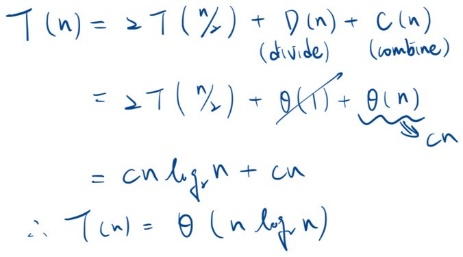 T(n) = 2T(n/2) + D(n) + C(n)
(divide) (combine)
= 2T(n/2) + θ(1) + θ(n)
cn
= cn log₂n + cn
∴ T(n) = θ(n log₂n)